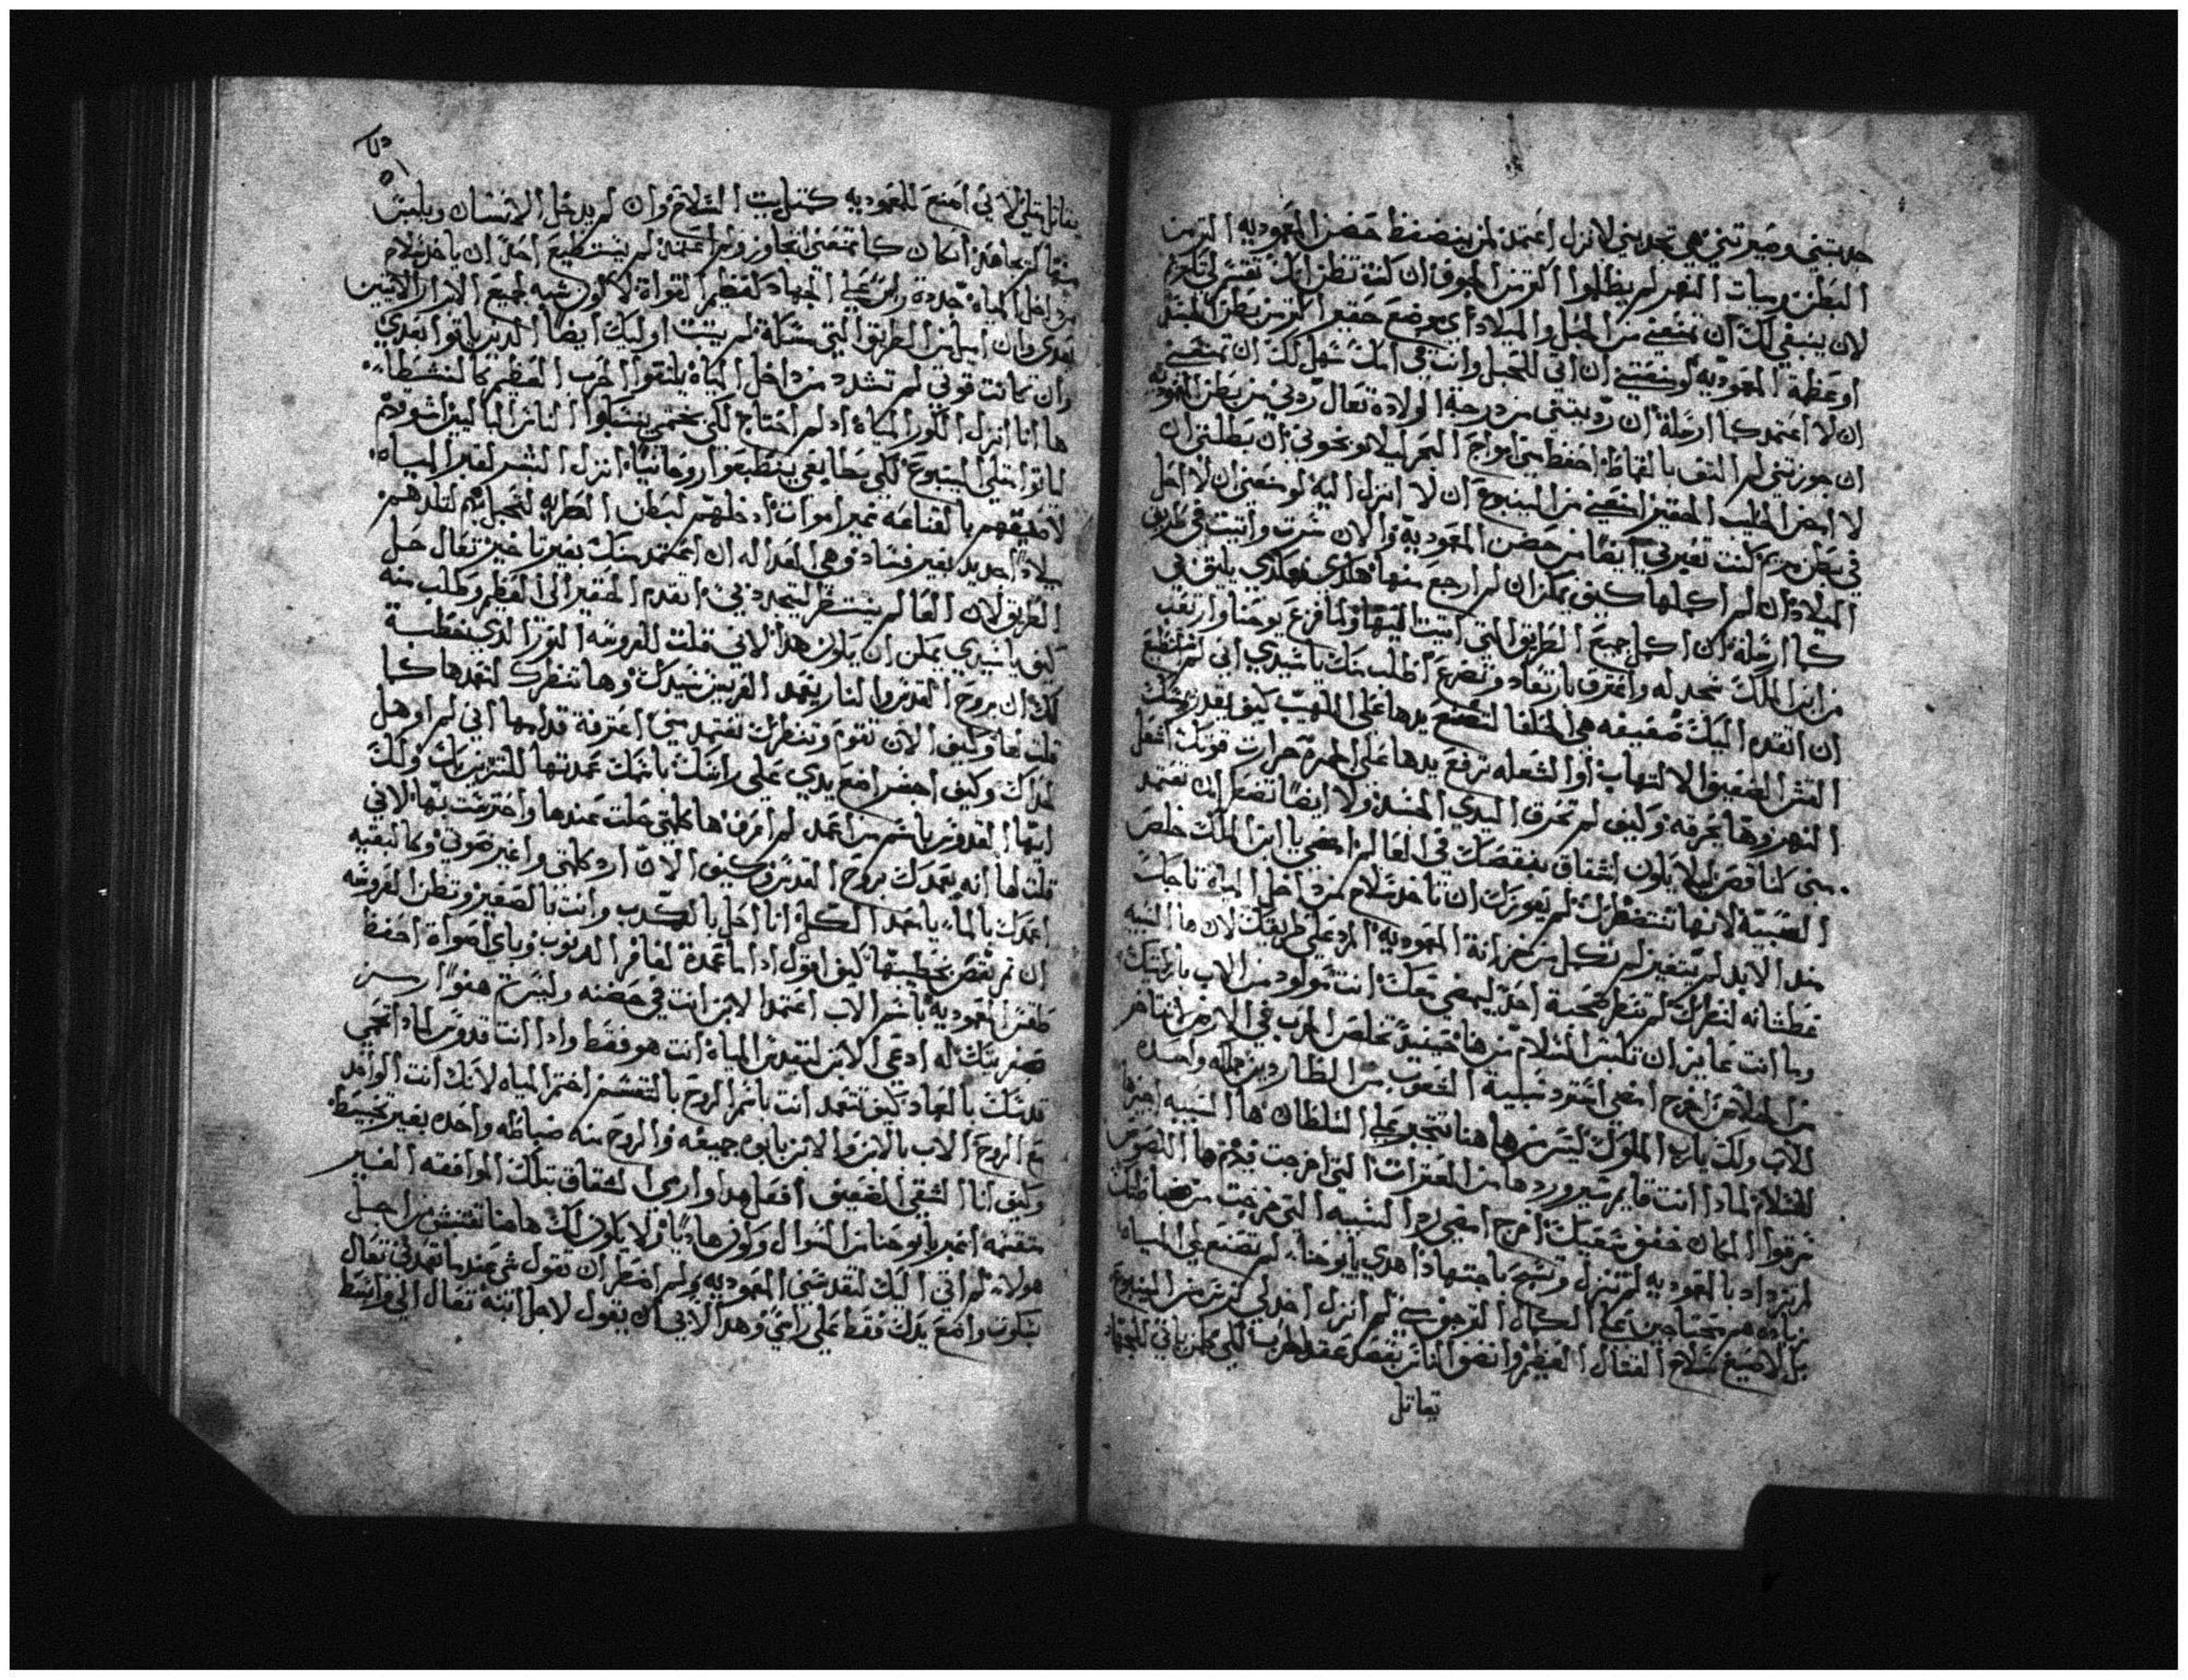 جدبتني وصيرتني هي تجدبني لانزل اعتمد لمن يضغط حضن المعموديه اكتر من
البطن وسيات النهر لم يظلموا اكتر من الجوف ان كنت تظن انك تفسر لي تلام
لان ينبغي لك ان تمنعني من الحبل والميلاد اي موضع حقير اكتر من بطن الجسد
او عظمة المعموديه لو منعتني ان اتي للحبل وانت في امك سهل لك ان تمنعني
ان لا اعتمد كما ارسلة ان رديتني من درجة الولاده تعال ردني من بطن المعموديه
ان جوزتني لم التف بالقماط احفظ مني امواج البحر ليلا يخوني ان بطلتني ان
لا احزن الحليب الحقير اخفيني من الينبوع ان لا انزل اليه لو منعني ان لا احل
في بطن مريم كنت تغير في ايضا من حضن المعموديه والان سرت واتيت في طريق
الميلاد ان لم اكملها كيف يمكن ان لم ارجع منها هكدي فهكدي يليق بي
كما ارسلة ان اكمل جميع الطريق التي اتيت اليها ولما فزع يوحنا وارتعب
من ابن الملك سجد له واعترف بارتعاد وتضرع اطلب منك يا سيدي اني لم استطيع
ان اتقدم اليك ضعيفه هي الحلفا لتضع يدها على اللهيب كيف يقدر يمسك
القش الضعيف الالتهاب او الشعله ترفع يدها على الجمرة حرارت قوتك اشعل
النهر وها يحرقه وكيف لم تحرق اليدي الجسد ولا ايضا تضطر ان تعتمد
مني كناقص ليلا يكون لشقاق ينقصك في العالم امضي يا ابن الملك خلص
السبيه لانها تنتظرك لم يعوزك ان تاخد سلاح من داخل المياه تاجك
مند الابد لم يتغير لم تكمل من خزانة المعموديه المرد على طريقك لان ها السبيه
عطشانه لنظرك لم تنظر صحبة احد ليمضي معك انت مولود من الاب باركتك
وما انت عايز ان تلبس السلاح من هنا حينيد تخلص الحرب في الارض انت ماهر
من الخلاص اخرج امضي استرد سبلية الشعوب من الطارد بين مملكه واحده
للاب ولك ياربي الملوك ليس من هاهنا تتجبر على السلطان ها السبيه اجيرها
للسلام لمادا انت قايم سير وردها من العترات التي اخرجت قدم ها اللصوص
سرقوا المكان خفف سعيك اخرج امضي رد السبيه التي خرجت من ضباطك
لم تزداد بالمعموديه لم تنزل وتسبح باجتهاد اهدي يا يوحنا لم تصنع لي المياه
زياده هم محتاجين على الكمال القرجوسي لم انزل اخد لي ترس من الينبوع
بل لاصيغ سلاح القتال العظيم وانصر الناس ينصر عقد الحرب لكي يمكن ياتي للجهاد
تعاتل
يقاتل بتلي لاني اصنع للمعموديه كمتل بيت السلاح وان لم يدخل الانسان ويلبس
منها لم يجاهد ان كان كما تمنعني اتجاوز ولم اعتمد لم يستطيع احد ان ياخد سلام
من داخل المياه جددة راس على الجهاد كعظيم القواة لاكون شبه لجميع الابرار الاتيين
بعدي وان اميل من الطريق التي مسكة لم يتبت اوليك ايضا الدين ياتوا بعدي
وان كانت قوتي لم تشدد من داخل المياه يلتقوا الحرب العظيم كالنشطا
ها انا انزل الكور المياه اد لم احتاج لكي يحتمي ينسكبوا الناس الباليين اشور لادم
لياتوا متلي الينبوع لكي بطابعي ينطبعوا روحانيا انزل البشر لقبر المياه
لاضيقهم بالقناعه غير اموات ادخلهم لبطن الطريه لتحبل بهم لتلدهم
ميلاد جديد بغير فساد وهي العداله ان اعتمد منك بغير تاخير تعال حل
الطريق لان العالم ينتظر ليتجدد بي اتقدم الحقير الى العظيم وطلب منه
كيف يا سيدي يمكن ان يكون هدا لاني قلت للعروسه النور الدي يخطبه
لك ان بروح القدس والنار يعمد العريس سيدك وها تنتظرك لتعمدها كما
قلت لها وكيف الان تقوم وتنظرك تعتمد مني اعترفة قدامها اني لم اوهل
لحداك وكيف احضر اضع يدي على راسك باسمك عمدتها للتزين بك ولك
ايها القدوس باسم من اعمد لم اعرف ها كلمتي حلت عندها واحترست بها لاني
قلت لها انه يعمدك بروح القدس وكيف الان ارد كلمتي واغير صوتي وكالبقيه
اعمدك بالماء يا ممجد الكل انا احل بالكدب وانت بالصغير وتظن العروسه
ان تم نقص بخطيبها كيف اقول ادا ما عمدة لغافر الدنوب وباي اصواة احفظ
طقس المعموديه باسم الاب اعتمد الابن انت في حضنه وليس تم هنوار سر
صغر منك له ادعي الابن لتقدس المياه انت هو فقط وادا انت قدوس لمادا تحمي
قدسك بالعماد كيف تتعمد انت باسم الروح بالتقسيم اختم المياه لانك انت الواحد
مع الروح الاب بالابن والابن بابوه جميعه والروح منه ضباطه واحده بغير تخبيط
وكيف انا الشقي الضعيف افعل هدا وارمي الشقاق بتلك الموافقه الغير
منقسمه اخبر يا يوحنا من السوال وكون هاديا ولا يكون لك هاهنا تفتش من اجل
هولاء لم اتي اليك لتقدسني المعموديه ولم اضطر ان تقول شي عند ما تعمدني تعال
بسكون واضع يدك فقط على راسي وهدا الاب ان يقول لاجل ابنه تعال الي وابسط